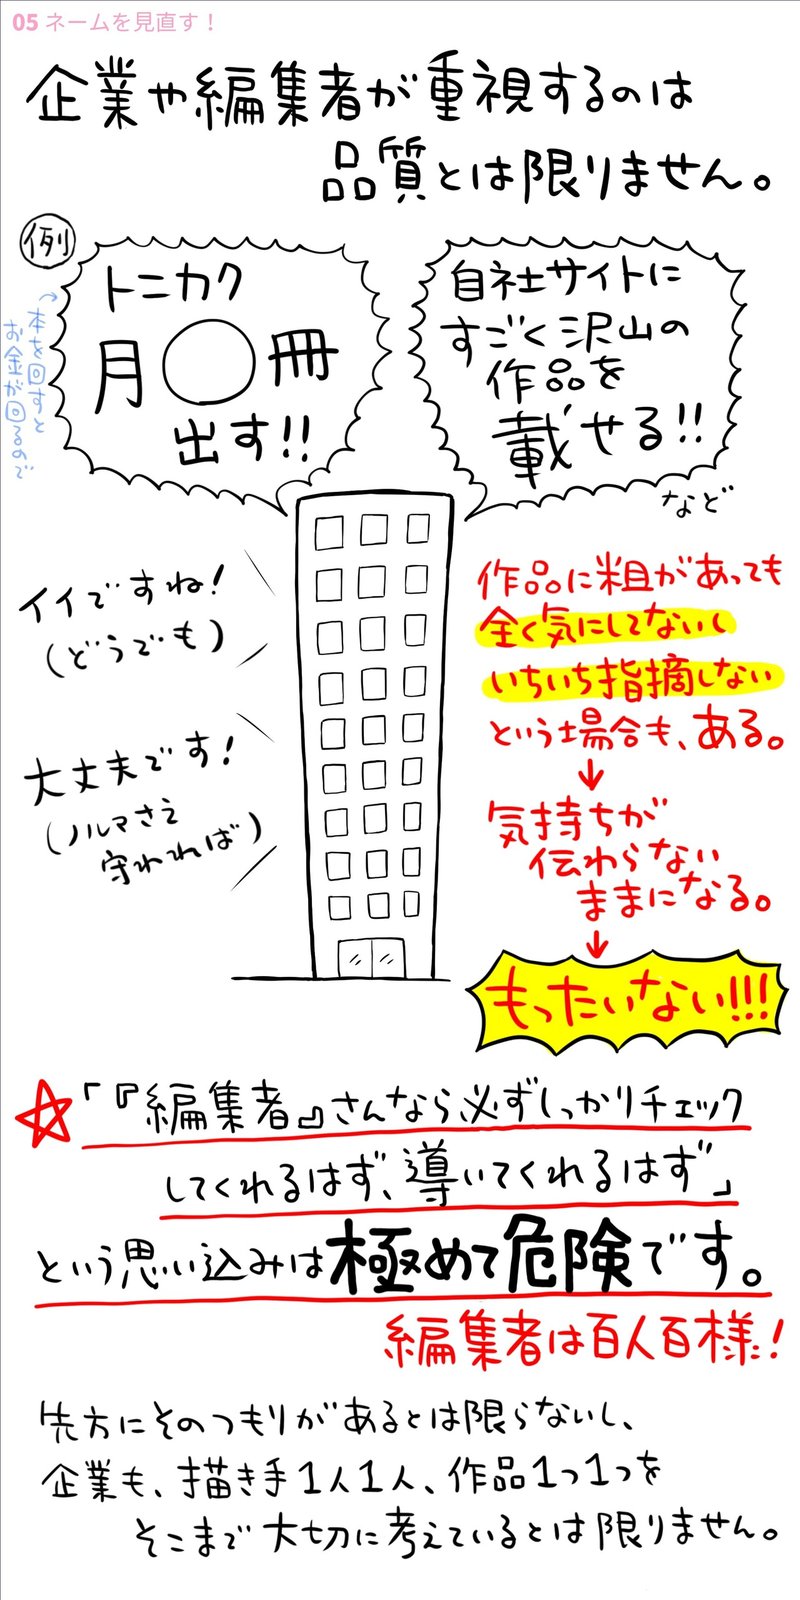 05 ネームを見直す！
企業や編集者が重視するのは
品質とは限りません。
例
トニカク
月〇冊
出す!!
本を回すと
お金が回るので
自社サイトに
すごく沢山の
作品を
載せる!!
など
イイですね!
(どうでも)
大丈夫です!
(ノルマさえ
守れれば)
作品に粗があっても
全く気にしてないし
いちいち指摘しない
という場合も、ある。
↓
気持ちが
伝わらない
ままになる。
↓
もったいない!!!
☆「『編集者』さんなら必ずしっかりチェック
してくれるはず、導いてくれるはず」
という思い込みは極めて危険です。
編集者は百人百様!
先方にそのつもりがあるとは限らないし、
企業も、描き手1人1人、作品1つ1つを
そこまで大切に考えているとは限りません。